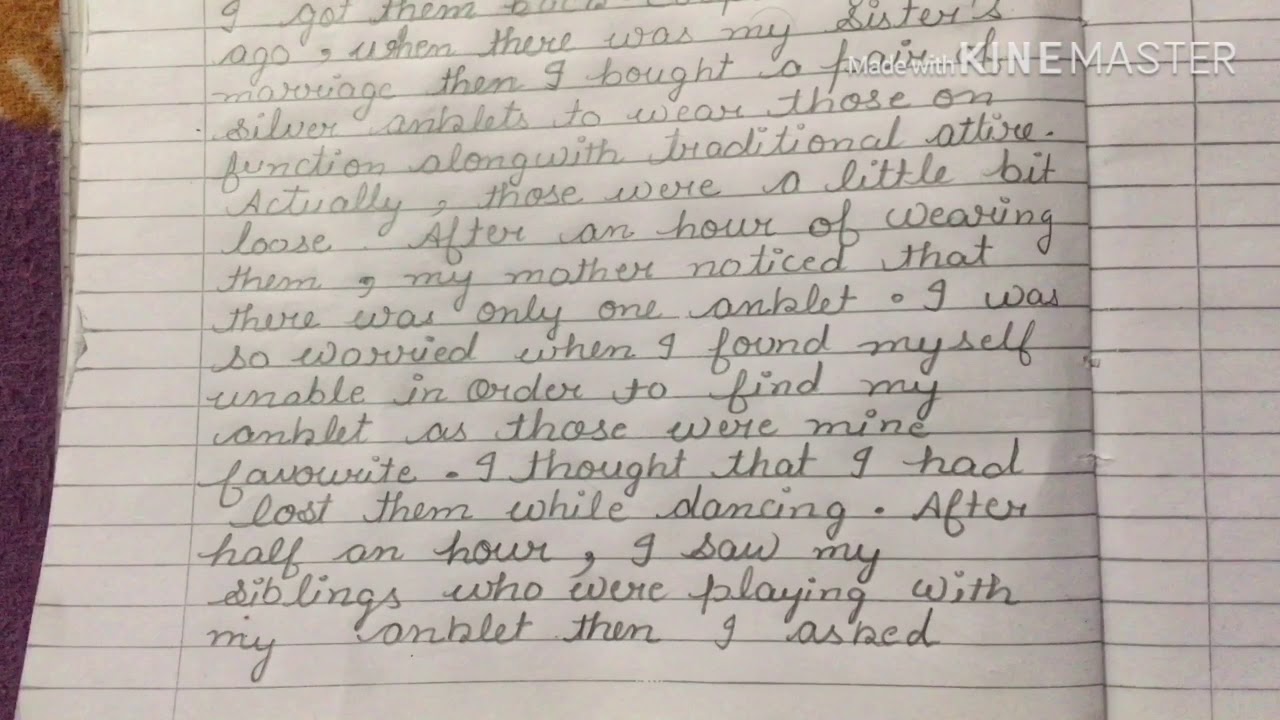 I got them back
ago, when there was my sister's
Made with KINEMASTER
marriage then I bought a pair of
silver anklets to wear those on
function alongwith traditional attire.
Actually, those were a little bit
loose. After an hour of wearing
them, my mother noticed that
there was only one anklet. I was
so worried when I found myself
unable in order to find my
anklet as those were mine
favourite. I thought that I had
lost them while dancing. After
half an hour, I saw my
siblings who were playing with
my anklet then I asked